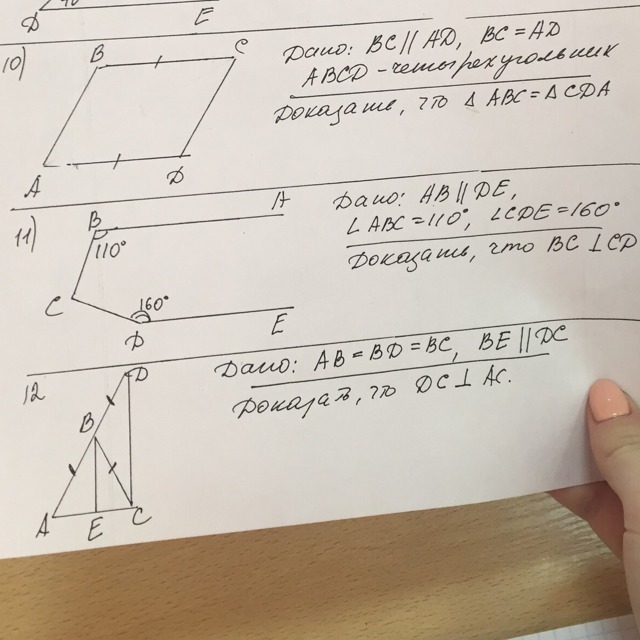 D E
10)
B C
A D
Дано: BC || AD, BC = AD
ABCD - четырехугольник
Доказать, что Δ ABC = Δ CDA
11)
B A
110°
C 160°
D E
Дано: AB || DE,
∠ ABC = 110°, ∠ CDE = 160°
Доказать, что BC ⊥ CD
12
D
B
A E C
Дано: AB = BD = BC, BE || DC
Доказать, что DC ⊥ AC.